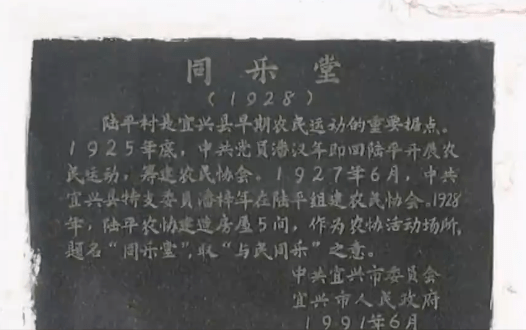 同乐堂
（1928）
陆平村是宜兴县早期农民运动的重要据点。
1925年底，中共党员潘汉年即回陆平开展农
民运动，筹建农民协会。1927年6月，中共
宜兴县特支委员潘梓年在陆平组建农民协会。1928
年，陆平农协建造房屋5间，作为农协活动场所，
题名“同乐堂”，取“与民同乐”之意。
中共宜兴市委员会
宜兴市人民政府
1991年6月